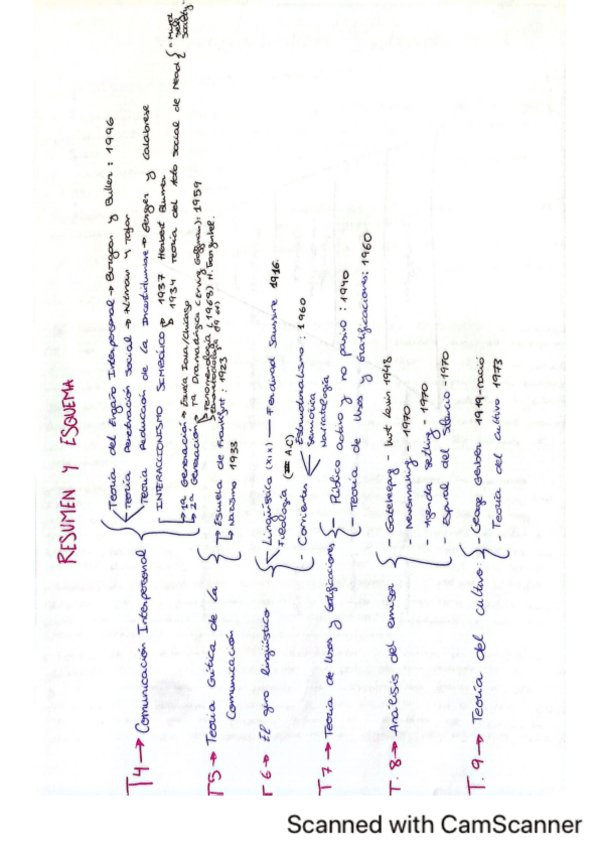 RESUMEN Y ESQUEMA
T4 → Comunicación Interpersonal
Teoría del Engaño Interpersonal → Burgoon y Buller : 1996
Teoría Penetración Social → Altman y Taylor
Teoría Reducción de la Incertidumbre → Berger y Calabrese
INTERACCIONISMO SIMBÓLICO 1937 Herbert Blumer
1934 Teoría del Acto Social de Mead { "Mind self society"
1ª Generación → Escuela Iowa/Chicago
2ª Generación → Tª Dramatúrgica (Erving Goffman): 1959
Fenomenología (1968)
Etnometodología H. Garfinkel
T5 → Teoría Crítica de la Comunicación
Escuela de Frankfurt : 1923
Nazismo 1933
T6 → El giro lingüístico
Lingüística (XIX) — Ferdinand Saussure 1916
Filología (A.C)
- Corrientes
Estructuralismo : 1960
Semiótica
Narratología
T7 → Teoría de Usos y Gratificaciones
- Público activo y no pasivo : 1940
- Teoría de Usos y Gratificaciones: 1960
T.8 → Análisis del emisor
- Gatekeeping - Kurt Lewin 1948
- Newsmaking - 1970
- Agenda Setting - 1970
- Espiral del Silencio - 1970
T.9 → Teoría del Cultivo:
- George Gerbner 1919-nació
- Teoría del cultivo 1973
Scanned with CamScanner